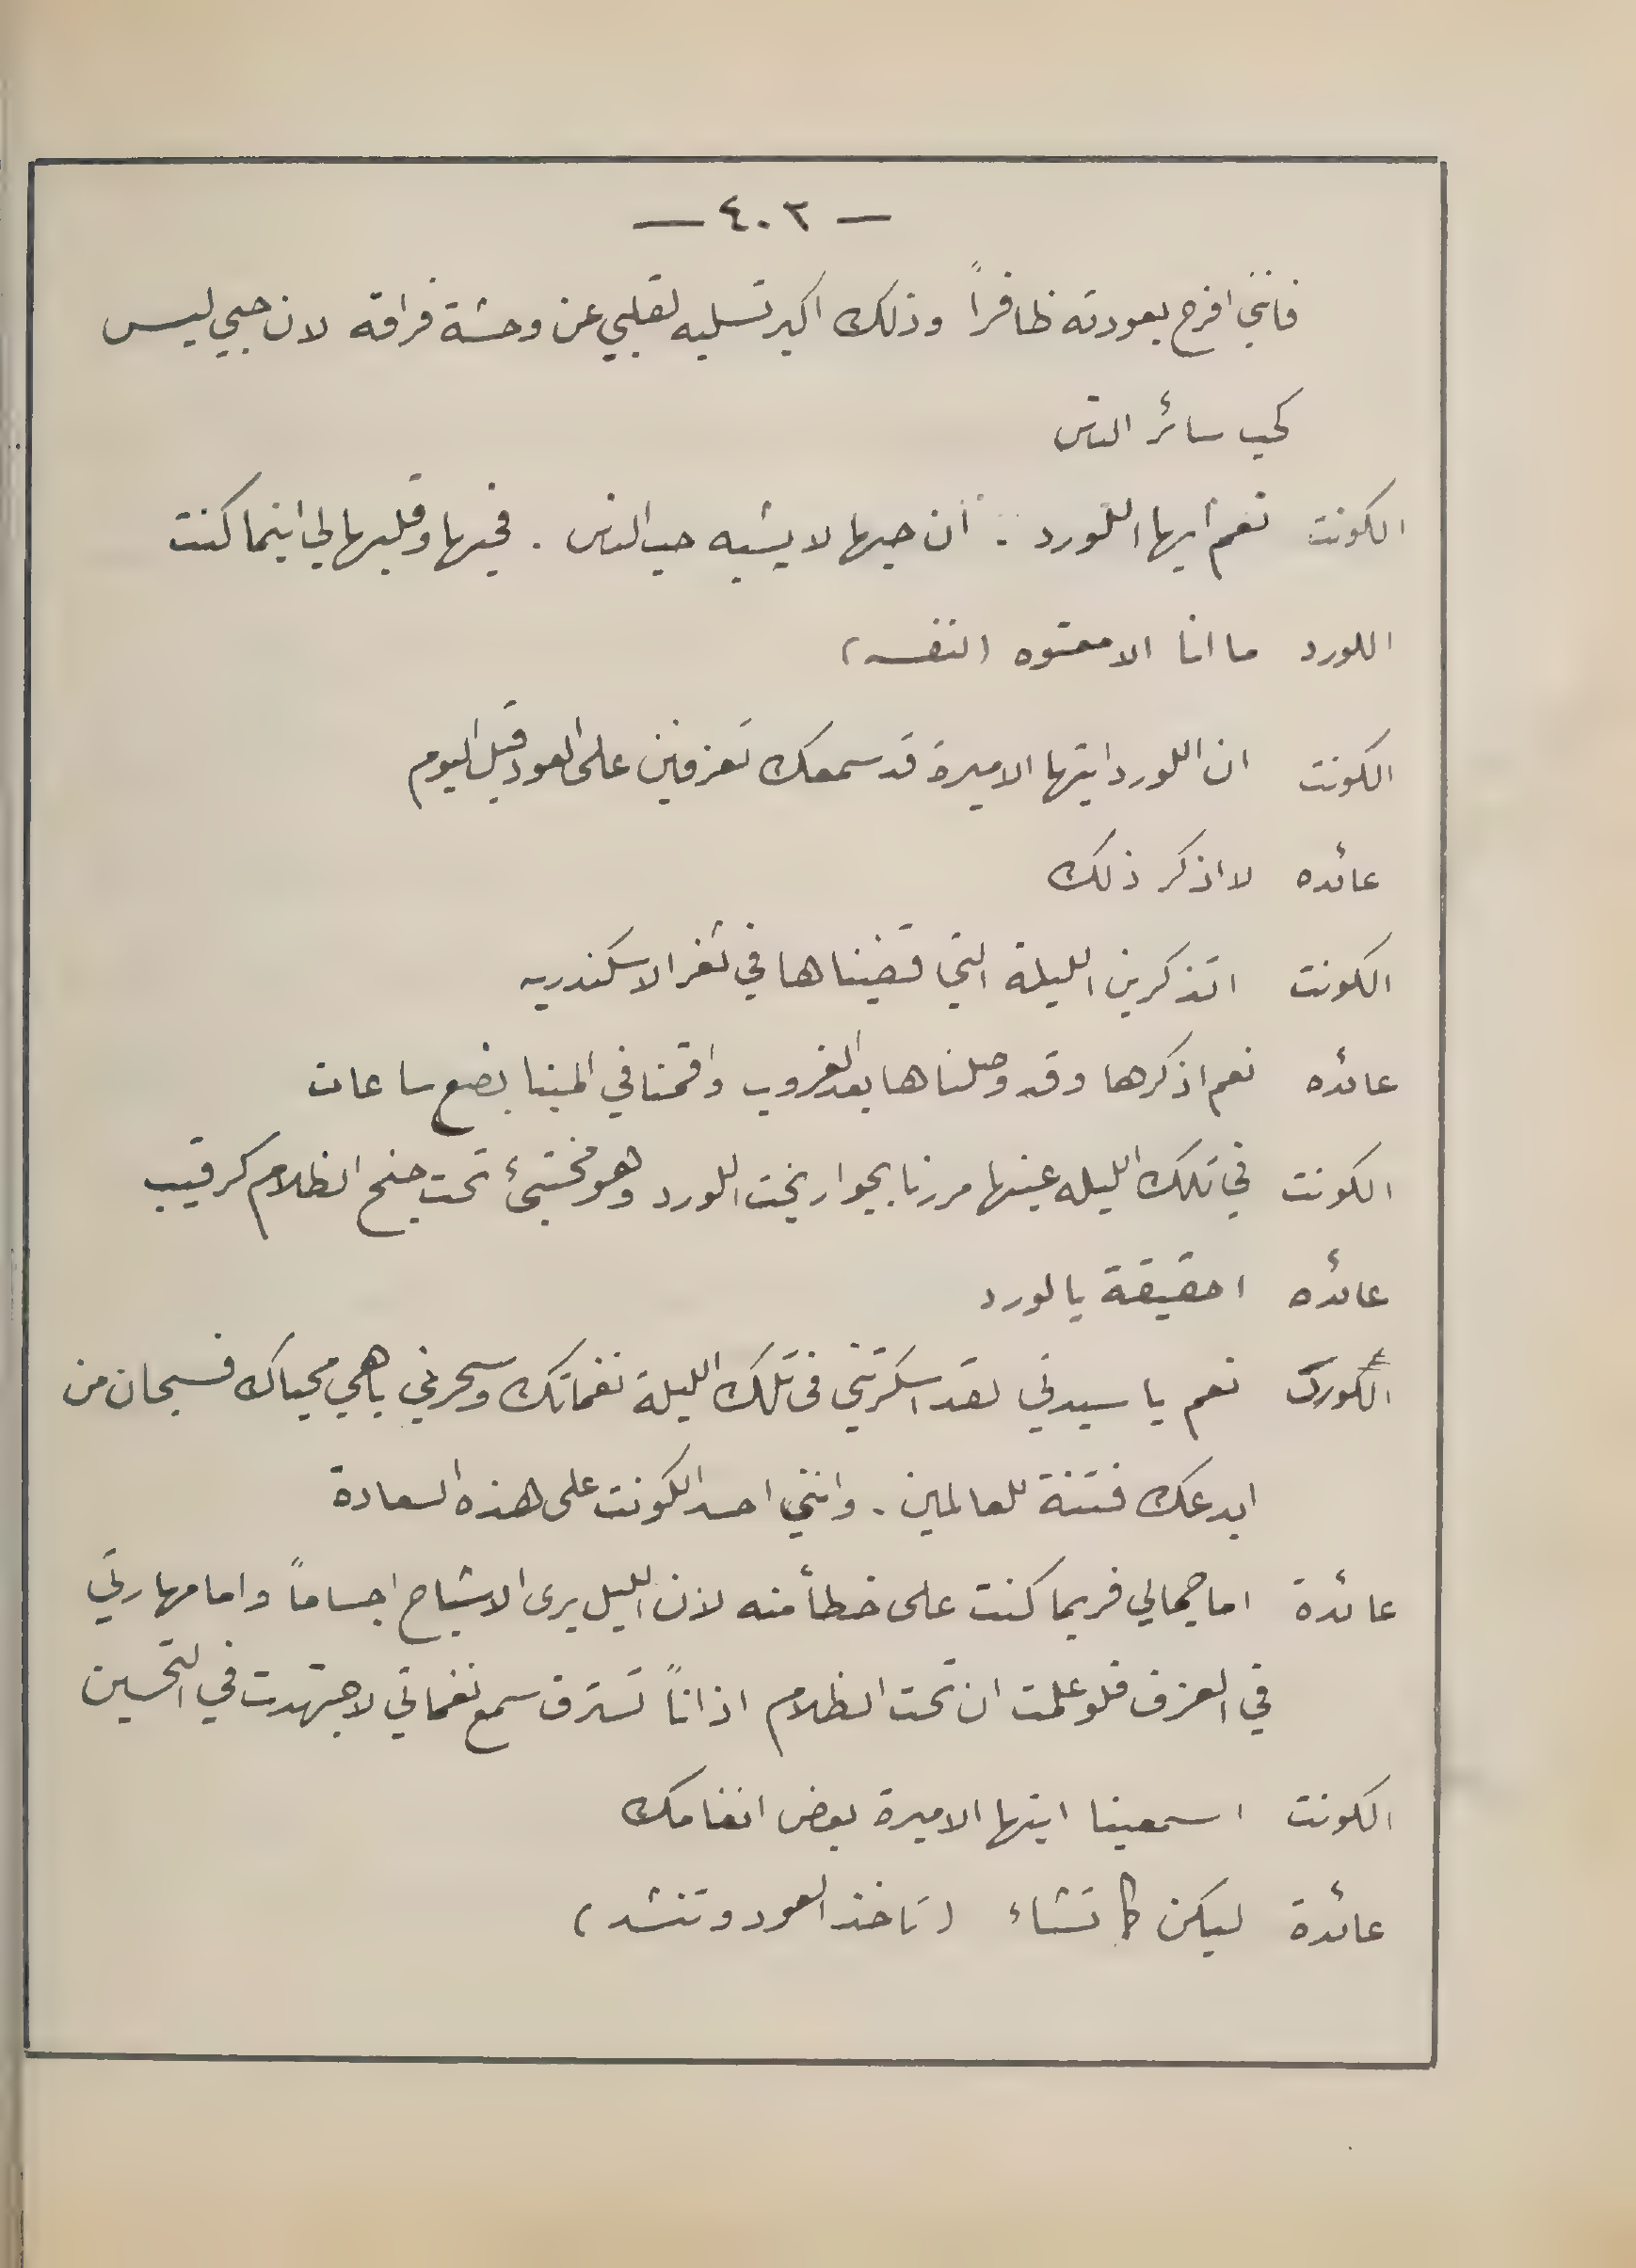 — ٤٠٢ —
فانني افرح بعودته ظافراً وذلك اكبر تسليه لقلبي عن وحشة فراقه لان حبي ليس
كحب سائر الناس
الكونت نعم ايها اللورد . ان حبها لا يشبه حب الناس . فحبها وقلبها لي اينما كنت
اللورد ما انا الا معتوه (لنفسه)
الكونت ان اللورد ايتها الاميرة قد سمعك تعزفين على العود قبل اليوم
عائده لا اذكر ذلك
الكونت اتذكرين الليلة التي قضيناها في ثغر الاسكندريه
عائده نعم اذكرها وقد وصلناها بعد الغروب واقمنا في المينا بضع ساعات
الكونت في تلك الليله عينها مررنا بجوار يخت اللورد وهو مختبئ تحت جنح الظلام كرقيب
عائده احقيقة يا لورد
اللورد نعم يا سيدتي لقد اسكرتني في تلك الليلة نغماتك وسحرني باهي محياك فسبحان من
ابدعك فتنة للعالمين . وانني احسد الكونت على هذه السعادة
عائدة اما جمالي فربما كنت على خطأ منه لان الليل يرى الاشباح اجساماً واما مهارتي
في العزف فلو علمت ان تحت الظلام اذاناً تسترق سمع نغماتي لاجتهدت في التحسين
الكونت اسمعينا ايتها الاميرة بعض انغامك
عائدة ليكن كما تشاء (تاخذ العود وتنشد)